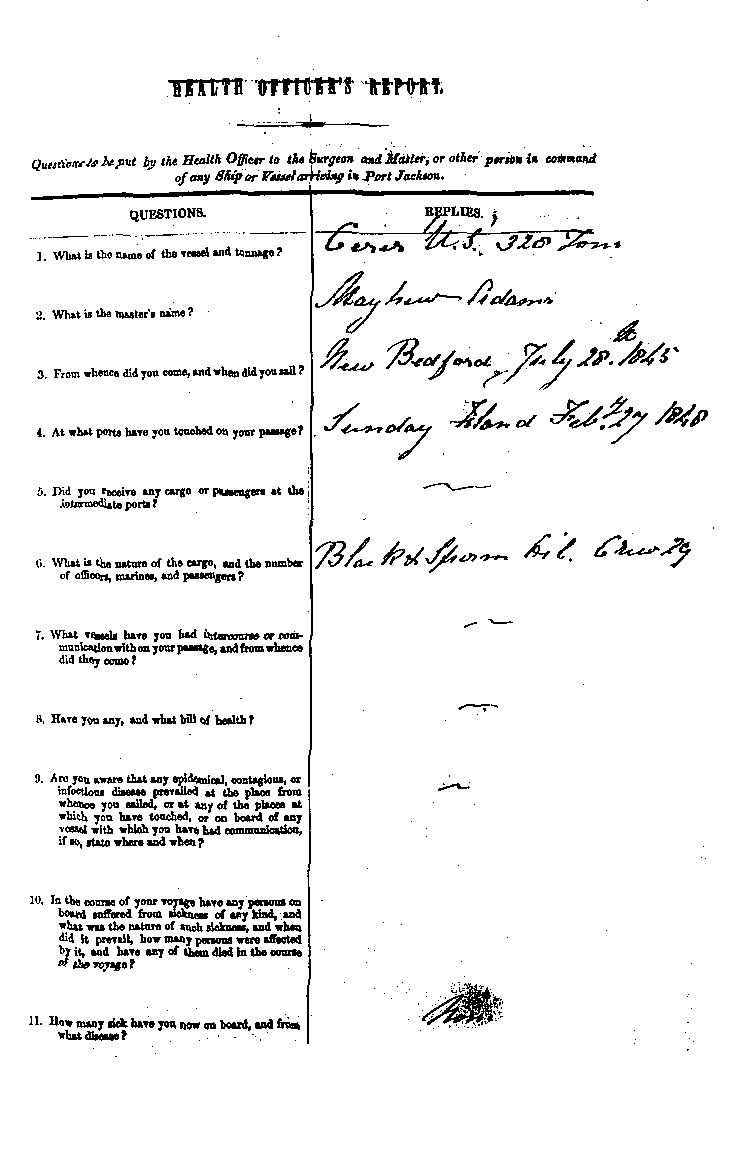 HEALTH OFFICER'S REPORT.
Questions to be put by the Health Officer to the Surgeon and Master, or other person in command
of any Ship or Vessel arriving in Port Jackson.
QUESTIONS.
REPLIES.
1. What is the name of the vessel and tonnage?
Ceres U.S. 328 Tons
2. What is the master's name?
Mayhew Adams
3. From whence did you come, and when did you sail?
New Bedford, July 28. 1845
4. At what ports have you touched on your passage?
Sunday Island Feby. 27 1848
5. Did you receive any cargo or passengers at the
intermediate ports?
6. What is the nature of the cargo, and the number
of officers, marines, and passengers?
Black & Sperm Oil. Crew 29
7. What vessels have you had intercourse or com-
munication with on your passage, and from whence
did they come?
8. Have you any, and what bill of health?
9. Are you aware that any epidemical, contagious, or
infectious disease prevailed at the place from
whence you sailed, or at any of the places at
which you have touched, or on board of any
vessel with which you have had communication,
if so, state where and when?
10. In the course of your voyage have any persons on
board suffered from sickness of any kind, and
what was the nature of such sickness, and when
did it prevail, how many persons were affected
by it, and have any of them died in the course
of the voyage?
11. How many sick have you now on board, and from
what disease?
None